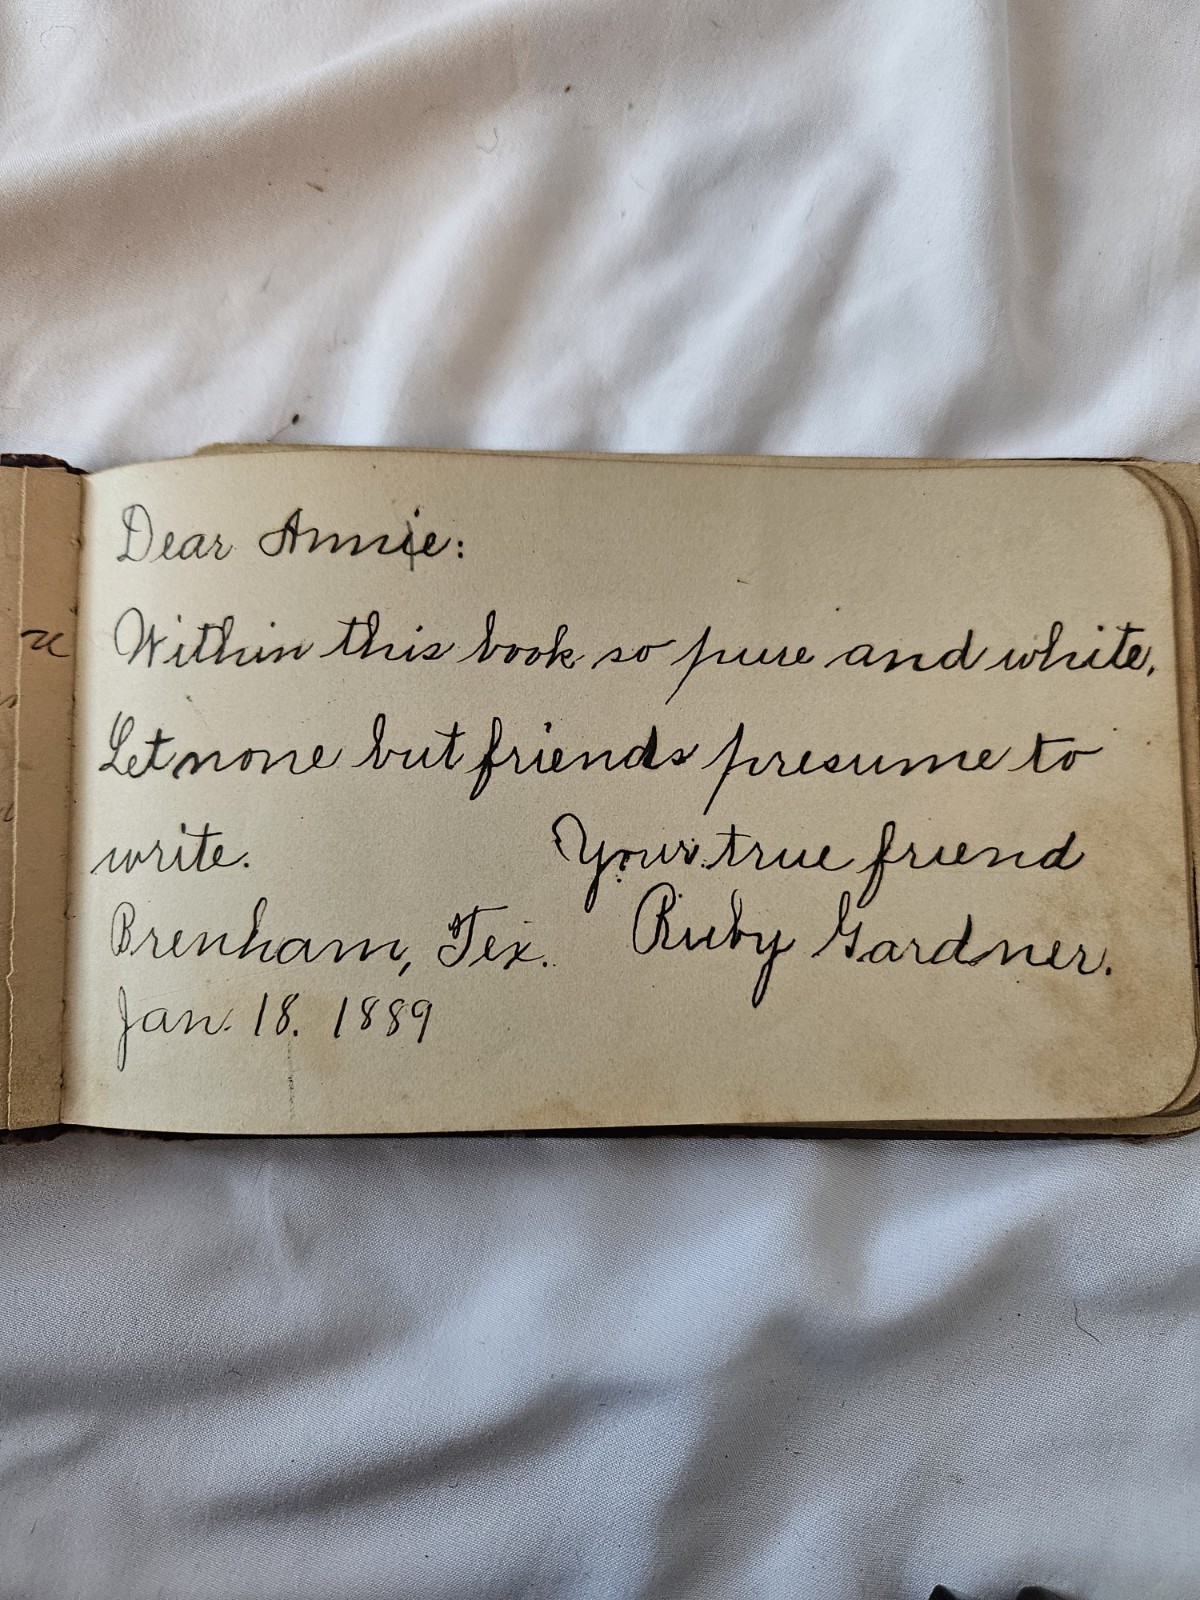 Dear Annie:
Within this book so pure and white,
Let none but friends presume to
write.
Your true friend
Brenham, Tex.
Ruby Gardner.
Jan. 18. 1889